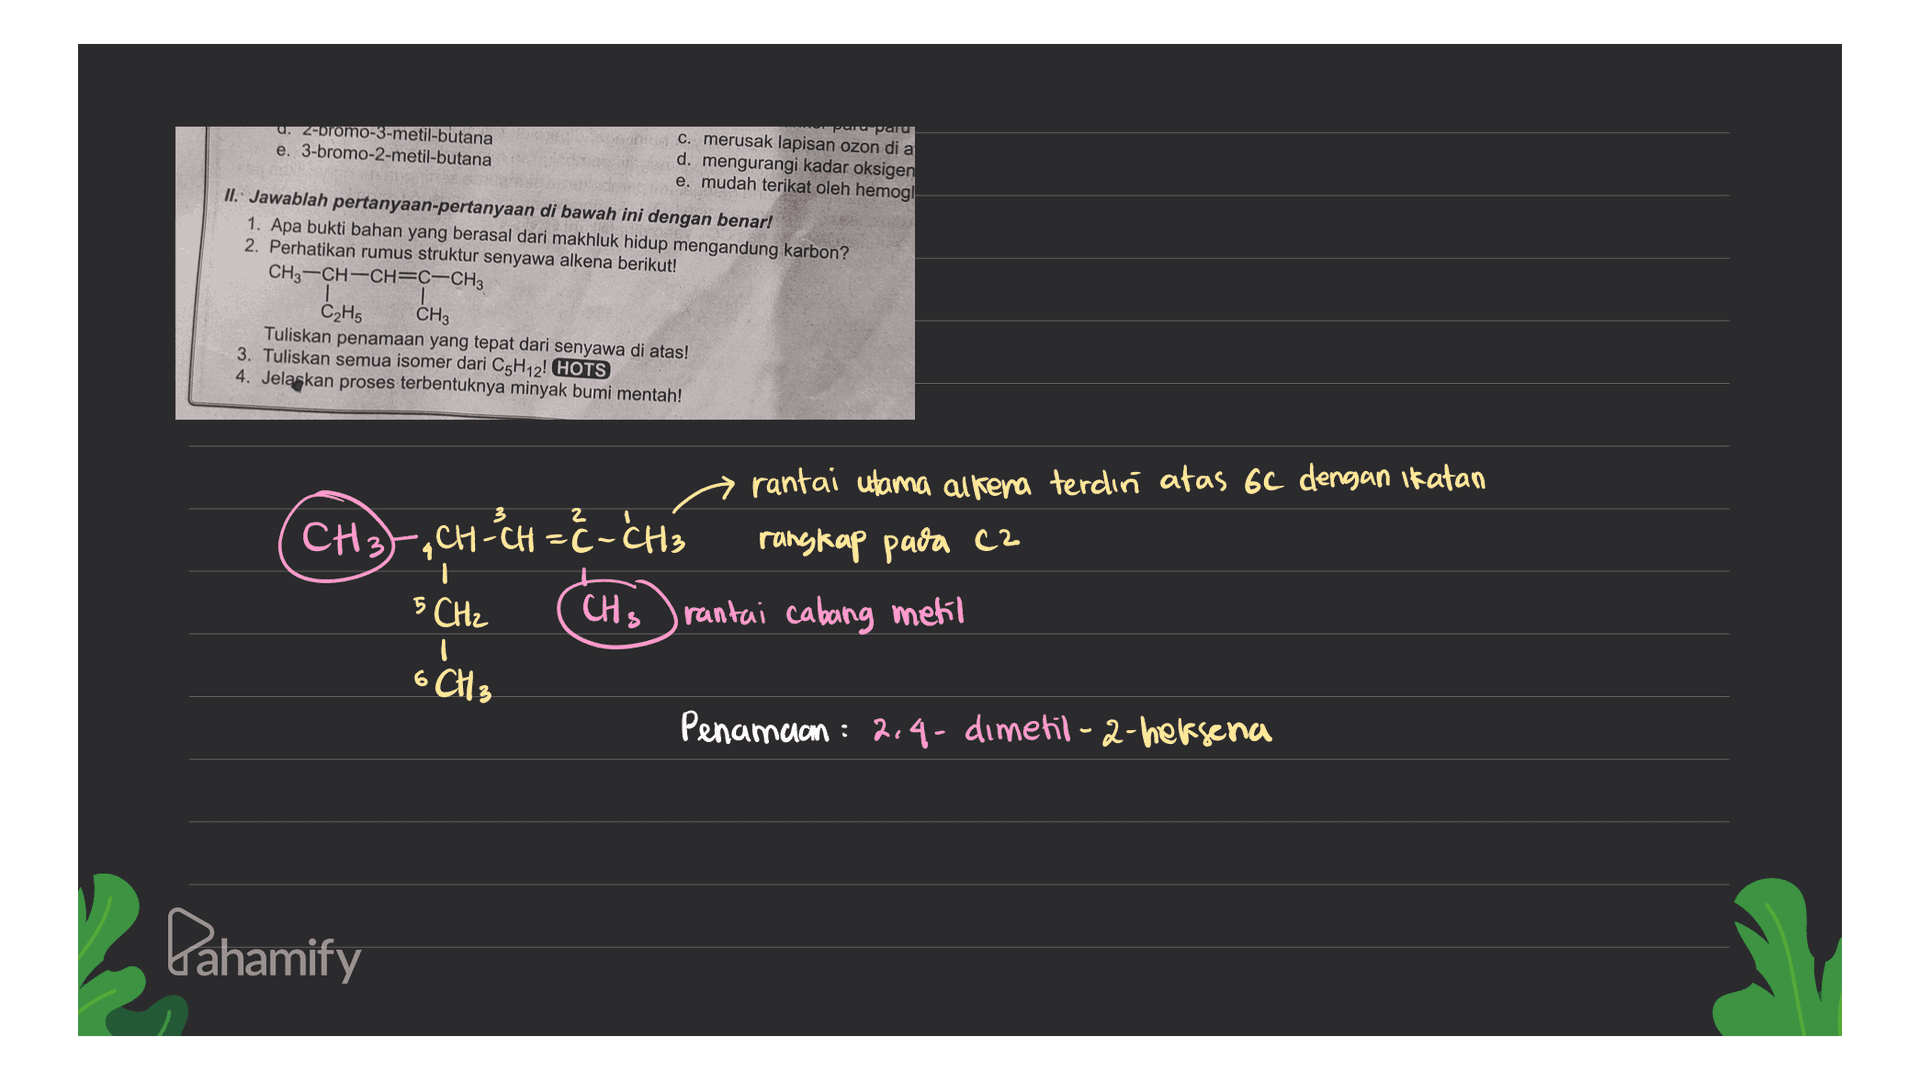 d. 2-bromo-3-metil-butana
e. 3-bromo-2-metil-butana
c. merusak lapisan ozon di a
d. mengurangi kadar oksigen
e. mudah terikat oleh hemogl
II. Jawablah pertanyaan-pertanyaan di bawah ini dengan benar!
1. Apa bukti bahan yang berasal dari makhluk hidup mengandung karbon?
2. Perhatikan rumus struktur senyawa alkena berikut!
CH3—CH—CH=C—CH3
C2H5 CH3
Tuliskan penamaan yang tepat dari senyawa di atas!
3. Tuliskan semua isomer dari C5H12! HOTS
4. Jelaskan proses terbentuknya minyak bumi mentah!
→ rantai utama alkena terdiri atas 6C dengan ikatan
rangkap pada C2
3 2 1
CH3 - 4 CH - CH = C - CH3
5 CH2 CH3 rantai cabang metil
6 CH3
Penamaan : 2,4- dimetil - 2-heksena
Pahamify